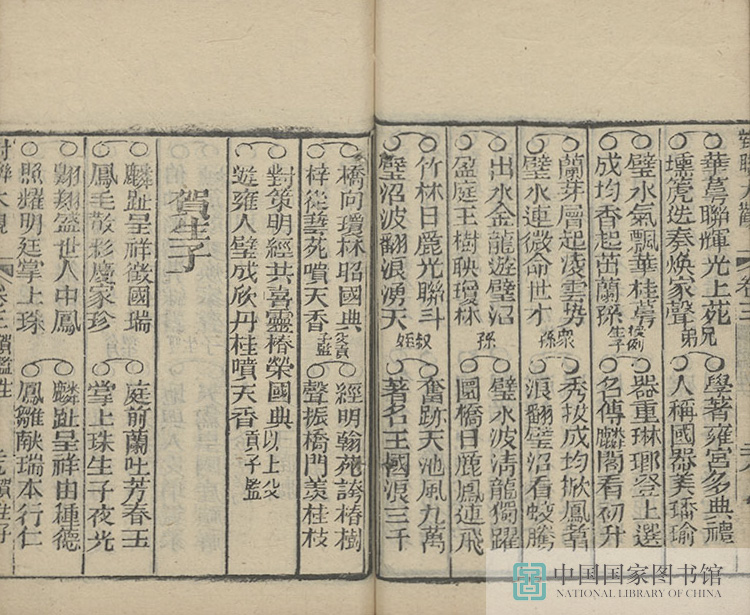 對聯大觀 卷三
華萼聯輝光上苑 兄 學著雍宮多典禮
壎箎迭奏煥家聲 弟 人稱國器美璠瑜
璧水氣飄華桂萼 援例 器重琳瑯登上選
成均香起茁蘭孫 生子 名傳麟閣看初升
蘭芽層起凌雲勢 衆 秀拔成均掀鳳翥
璧水連徵命世才 孫 浪翻璧沼看蛟騰
出水金龍遊璧沼 璧水波清龍獨躍
盈庭玉樹映瓊林 孫 圜橋日麗鳳連飛
竹林日麗光聯斗 叔 奮跡天池風九萬
璧沼波翻浪湧天 姪 著名王國浪三千
橋向瓊林昭國典 父貢 經明翰苑誇椿樹
梓從藝苑噴天香 子監 聲振橋門羨桂枝
對策明經共喜靈椿榮國典 以上父
遊雍入璧咸欣丹桂噴天香 貢子監
賀生子
麟趾呈祥徵國瑞 庭前蘭吐芳春玉
鳳毛散彩慶家珍 掌上珠生子夜光
翔翔盛世人中鳳 麟趾呈祥由種德
照耀明廷掌上珠 鳳雛献瑞本行仁
對聯大觀 卷三
中国国家图书馆
NATIONAL LIBRARY OF CHINA